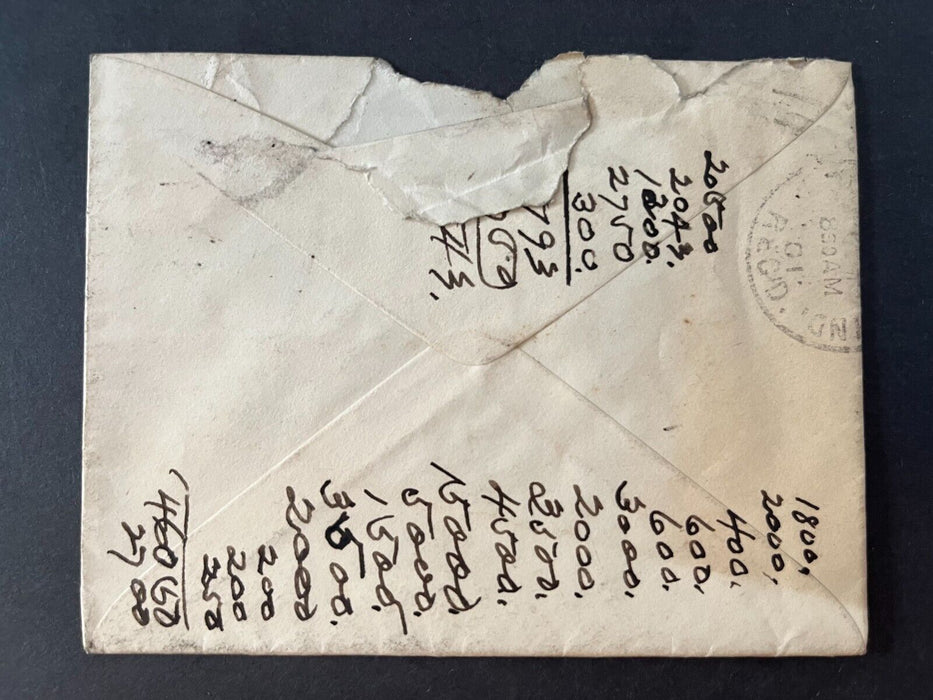 20500
2043.
1200.
2750
300.
793
250
43.
830 AM
REC'D.
1800.
2000.
400.
600.
600.
3000.
2000.
2500.
4500.
15000.
5000.
1500.
3500.
2000
200
200
250
46050
2700